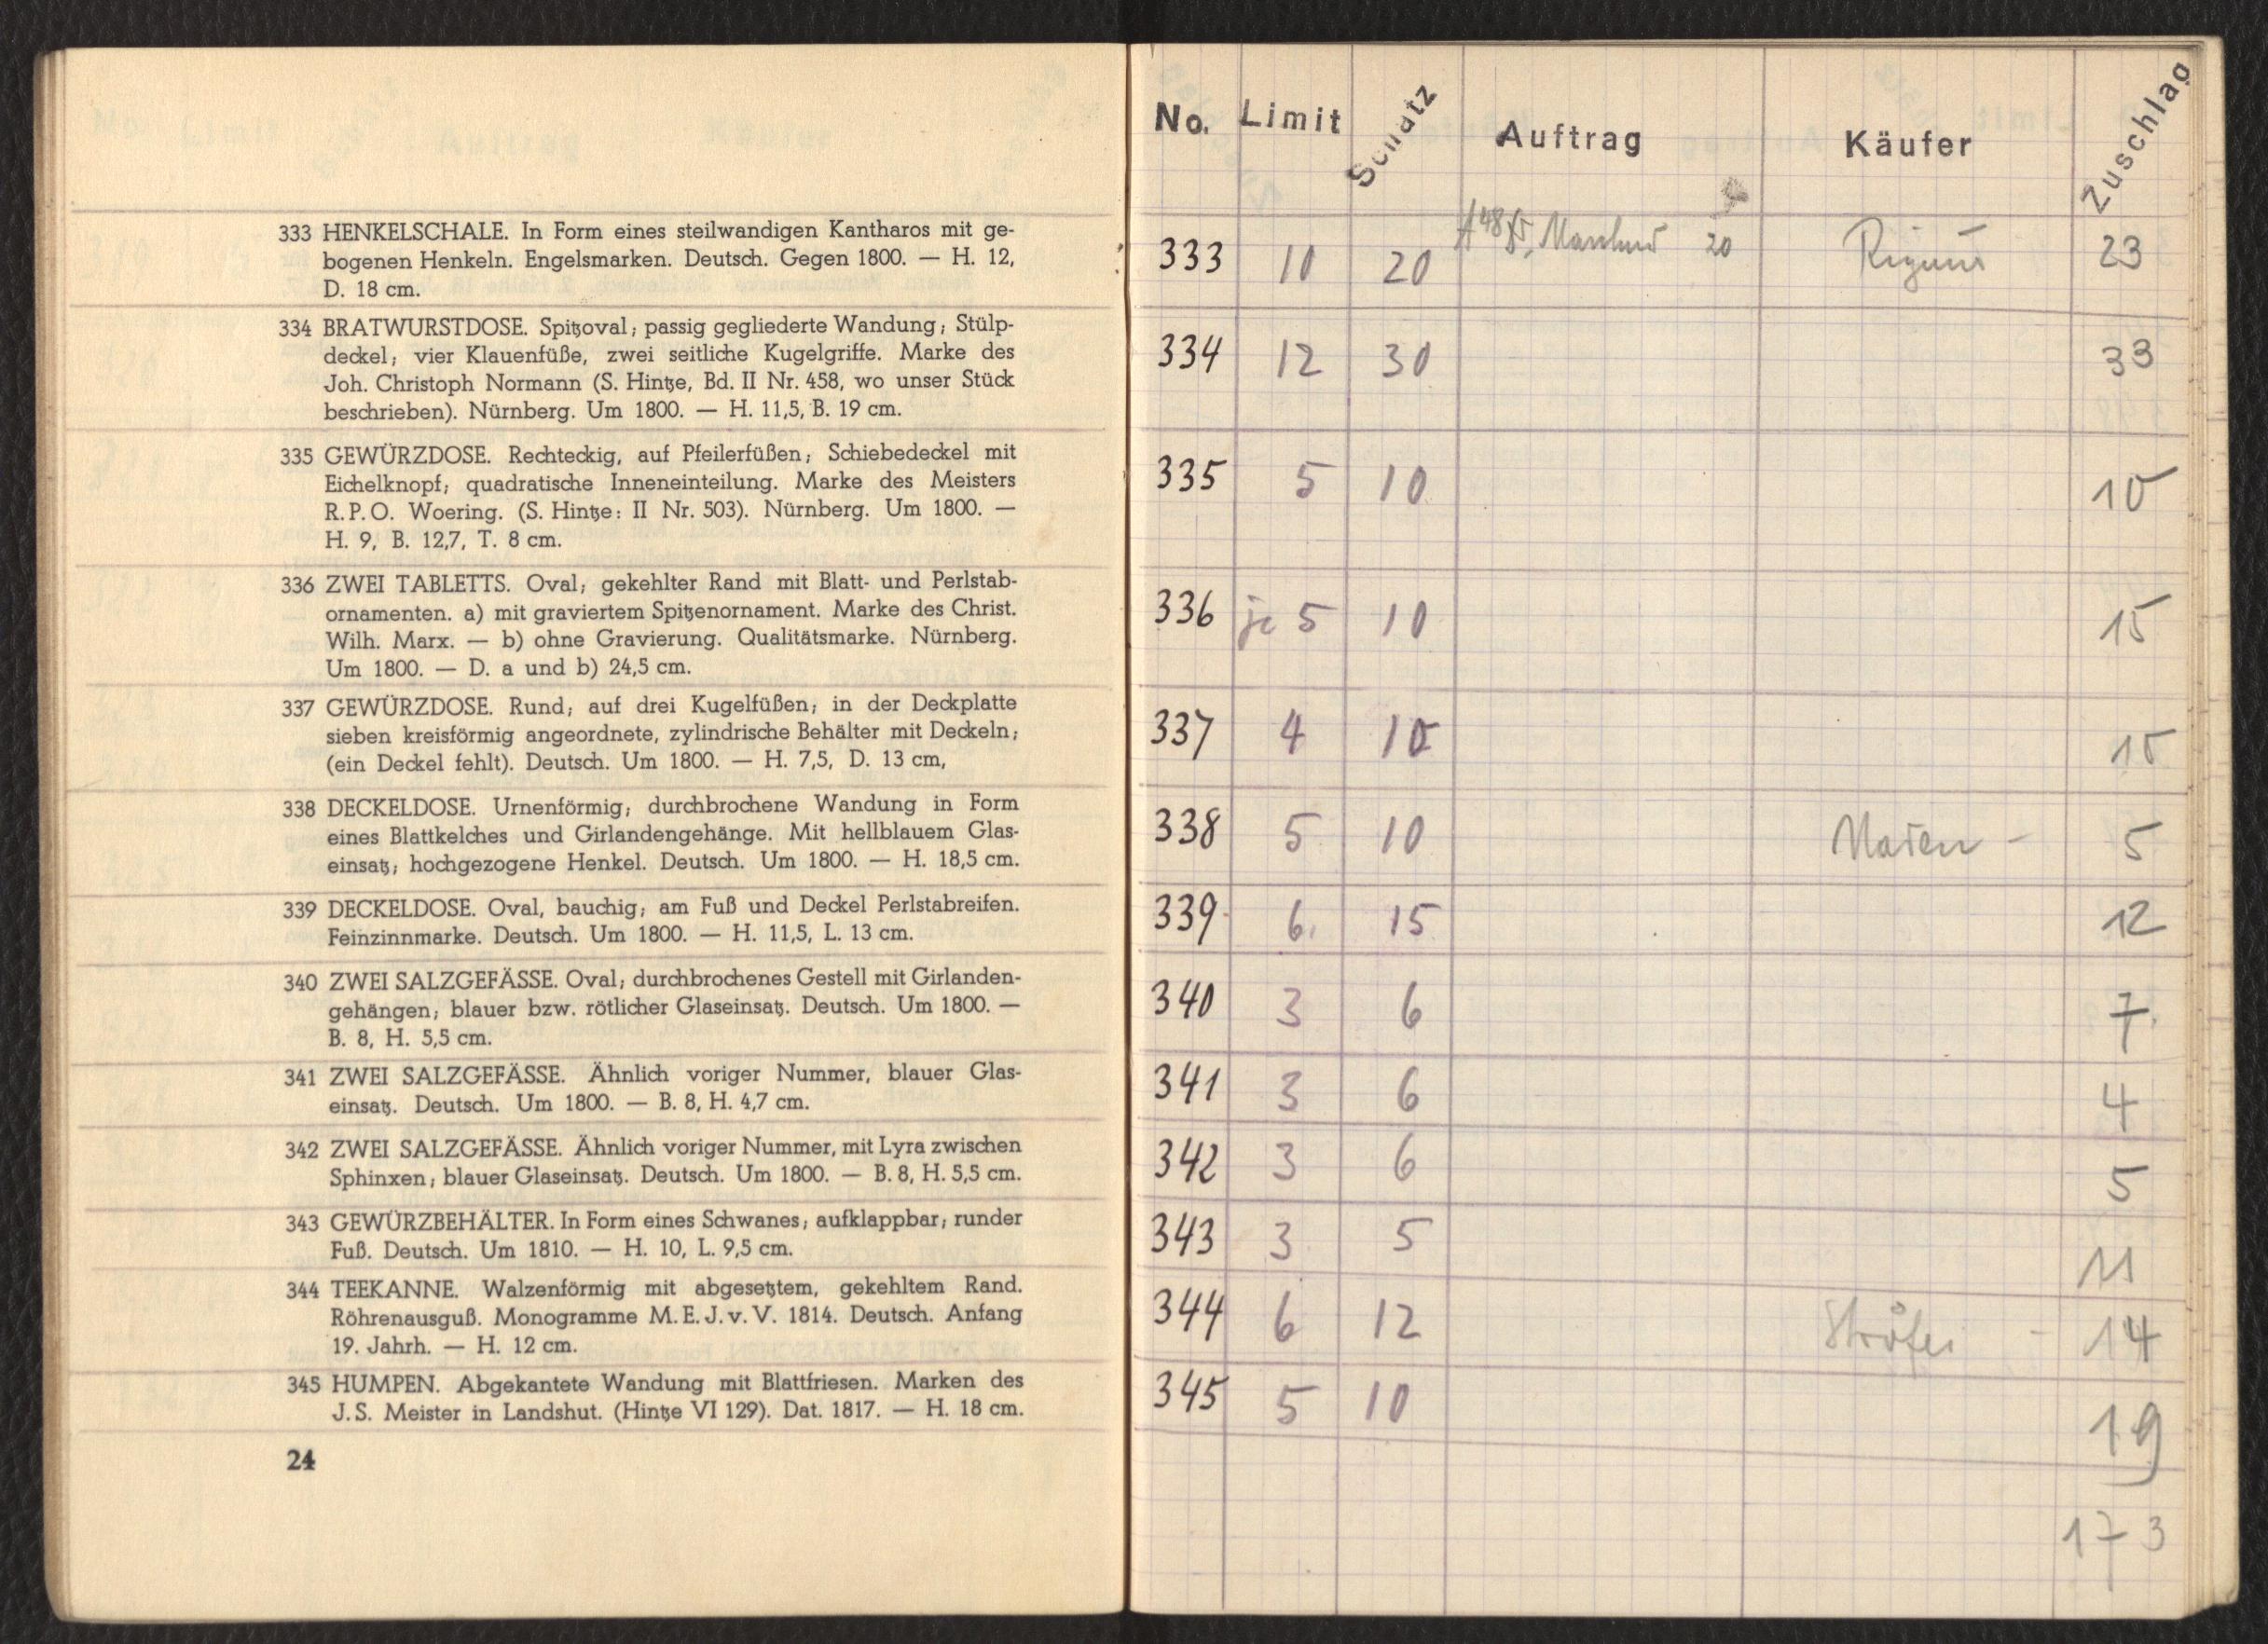 333 HENKELSCHALE. In Form eines steilwandigen Kantharos mit ge-
bogenen Henkeln. Engelsmarken. Deutsch. Gegen 1800. — H. 12,
D. 18 cm.
334 BRATWURSTDOSE. Spitzoval; passig gegliederte Wandung; Stülp-
deckel; vier Klauenfüße, zwei seitliche Kugelgriffe. Marke des
Joh. Christoph Normann (S. Hintze, Bd. II Nr. 458, wo unser Stück
beschrieben). Nürnberg. Um 1800. — H. 11,5, B. 19 cm.
335 GEWÜRZDOSE. Rechteckig, auf Pfeilerfüßen; Schiebedeckel mit
Eichelknopf; quadratische Inneneinteilung. Marke des Meisters
R. P. O. Woering. (S. Hintze: II Nr. 503). Nürnberg. Um 1800. —
H. 9, B. 12,7, T. 8 cm.
336 ZWEI TABLETTS. Oval; gekehlter Rand mit Blatt- und Perlstab-
ornamenten. a) mit graviertem Spitzenornament. Marke des Christ.
Wilh. Marx. — b) ohne Gravierung. Qualitätsmarke. Nürnberg.
Um 1800. — D. a und b) 24,5 cm.
337 GEWÜRZDOSE. Rund; auf drei Kugelfüßen; in der Deckplatte
sieben kreisförmig angeordnete, zylindrische Behälter mit Deckeln;
(ein Deckel fehlt). Deutsch. Um 1800. — H. 7,5, D. 13 cm,
338 DECKELDOSE. Urnenförmig; durchbrochene Wandung in Form
eines Blattkelches und Girlandengehänge. Mit hellblauem Glas-
einsatz; hochgezogene Henkel. Deutsch. Um 1800. — H. 18,5 cm.
339 DECKELDOSE. Oval, bauchig; am Fuß und Deckel Perlstabreifen.
Feinzinnmarke. Deutsch. Um 1800. — H. 11,5, L. 13 cm.
340 ZWEI SALZGEFÄSSE. Oval; durchbrochenes Gestell mit Girlanden-
gehängen; blauer bzw. rötlicher Glaseinsatz. Deutsch. Um 1800. —
B. 8, H. 5,5 cm.
341 ZWEI SALZGEFÄSSE. Ähnlich voriger Nummer, blauer Glas-
einsatz. Deutsch. Um 1800. — B. 8, H. 4,7 cm.
342 ZWEI SALZGEFÄSSE. Ähnlich voriger Nummer, mit Lyra zwischen
Sphinxen; blauer Glaseinsatz. Deutsch. Um 1800. — B. 8, H. 5,5 cm.
343 GEWÜRZBEHÄLTER. In Form eines Schwanes; aufklappbar; runder
Fuß. Deutsch. Um 1810. — H. 10, L. 9,5 cm.
344 TEEKANNE. Walzenförmig mit abgesetztem, gekehltem Rand.
Röhrenausguß. Monogramme M. E. J. v. V. 1814. Deutsch. Anfang
19. Jahrh. — H. 12 cm.
345 HUMPEN. Abgekantete Wandung mit Blattfriesen. Marken des
J. S. Meister in Landshut. (Hintze VI 129). Dat. 1817. — H. 18 cm.
24
No. Limit Schatz Auftrag Käufer Zuschlag
333 10 20 20 23
334 12 30 33
335 5 10 10
336 je 5 10 15
337 4 10 15
338 5 10 5
339 6 15 12
340 3 6 7
341 3 6 4
342 3 6 5
343 3 5 11
344 6 12 14
345 5 10 19
173